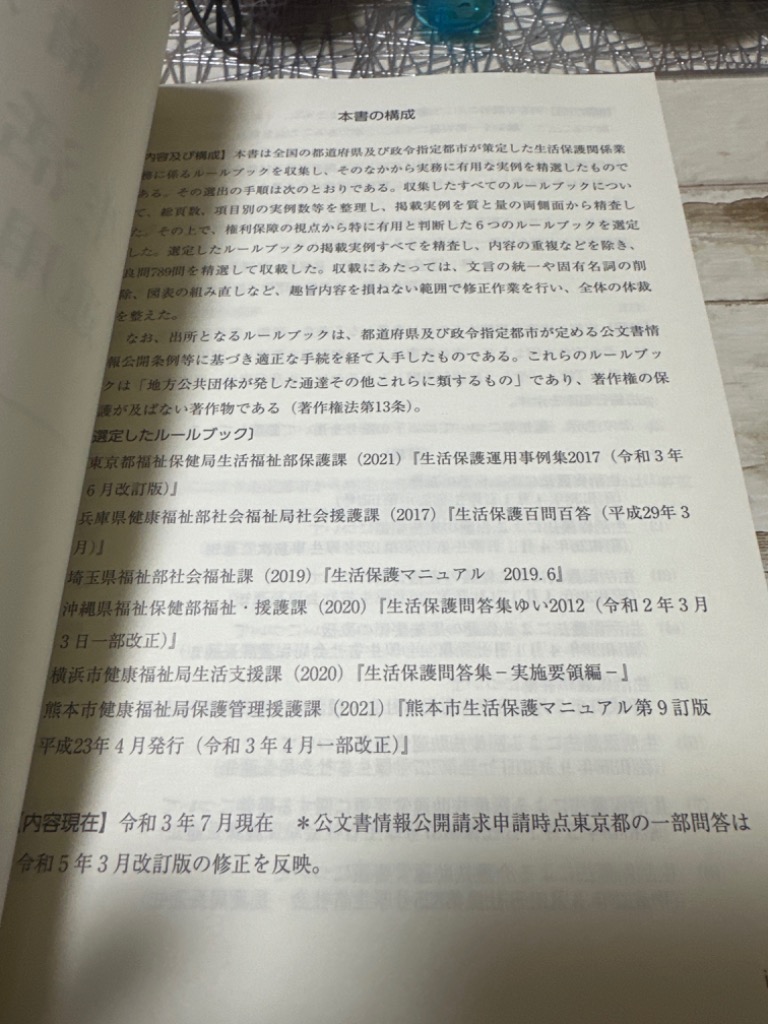 本書の構成
内容及び構成】本書は全国の都道府県及び政令指定都市が策定した生活保護関係業
務に係るルールブックを収集し、そのなかから実務に有用な実例を精選したもので
ある。その選出の手順は次のとおりである。収集したすべてのルールブックについ
て、総頁数、項目別の実例数等を整理し、掲載実例を質と量の両側面から精査し
た。その上で、権利保障の視点から特に有用と判断した6つのルールブックを選定
した。選定したルールブックの掲載実例すべてを精査し、内容の重複などを除き、
良問789問を精選して収載した。収載にあたっては、文言の統一や固有名詞の削
除、図表の組み直しなど、趣旨内容を損ねない範囲で修正作業を行い、全体の体裁
を整えた。
なお、出所となるルールブックは、都道府県及び政令指定都市が定める公文書情
報公開条例等に基づき適正な手続を経て入手したものである。これらのルールブッ
クは「地方公共団体が発した通達その他これらに類するもの」であり、著作権の保
護が及ばない著作物である（著作権法第13条）。
選定したルールブック〕
東京都福祉保健局生活福祉部保護課（2021）『生活保護運用事例集2017（令和3年
6月改訂版）』
兵庫県健康福祉部社会福祉局社会援護課（2017）『生活保護百問百答（平成29年3
月）』
埼玉県福祉部社会福祉課（2019）『生活保護マニュアル　2019.6』
沖縄県福祉保健部福祉・援護課（2020）『生活保護問答集ゆい2012（令和2年3月
3日一部改正）』
横浜市健康福祉局生活支援課（2020）『生活保護問答集－実施要領編－』
熊本市健康福祉局保護管理援護課（2021）『熊本市生活保護マニュアル第9訂版
平成23年4月発行（令和3年4月一部改正）』
【内容現在】令和3年7月現在　＊公文書情報公開請求申請時点東京都の一部問答は
令和5年3月改訂版の修正を反映。